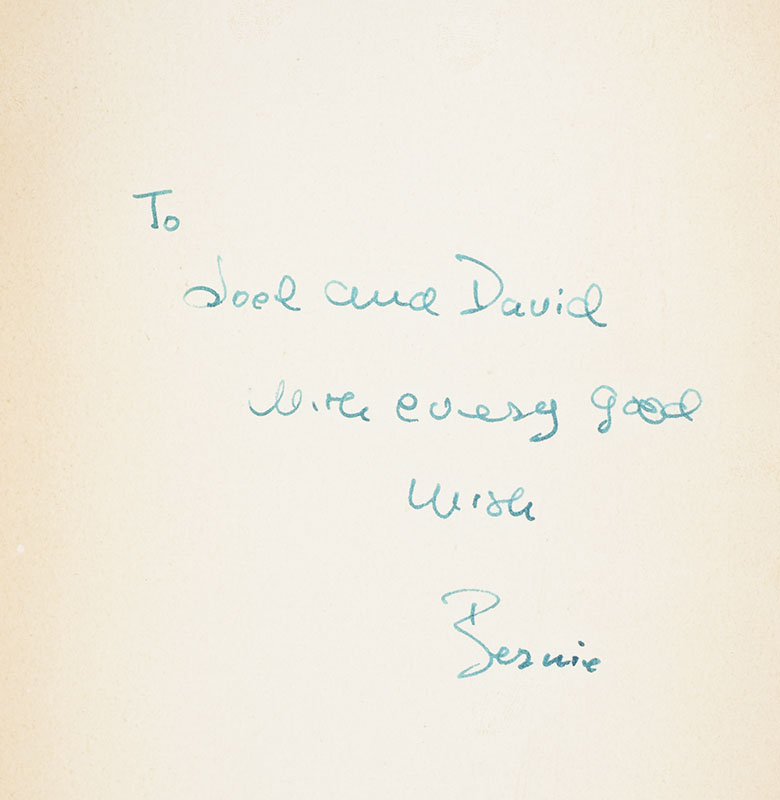 To
Joel and David
With every good
wish
Bernie